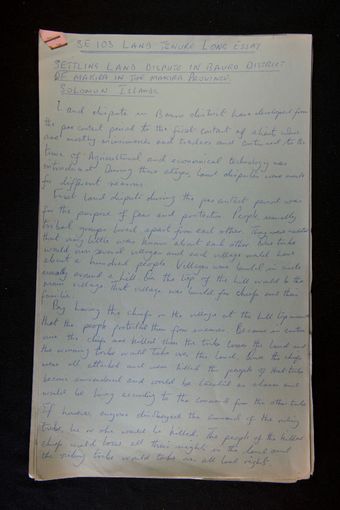 SE 103 LAND TENURE LONG ESSAY
SETTLING LAND DISPUTE IN BAURO DISTRICT
OF MAKIRA IN THE MAKIRA PROVINCE.
SOLOMON ISLANDS
Land dispute in Bauro district have developed from
the precontact period to the first contact of
are mostly missionaries and traders and continued to the
time of Agricultural and economical technology was
introduced. During these stages, land disputes were made
for different reasons.
First land dispute during the pre contact period was
for the purpose of fear and protection. People usually
tribal groups lived apart from each other. They
that very little was known about each other. One tribe
would own several villages and each village would have
about a hundred people. Villages were
usually around a hill. On the top of the hill would be the
main village that village was for chiefs and their
families.
By having the chiefs in the village at the hill top meant
that the people protected them from enemies. Because in custom
once the chief was killed then the tribe looses the land and
the winning tribe would take over the land. Once the chiefs
were all attacked and were killed the people of that tribe
became surrendered and would be as slaves and
would be living according to the commands from the other tribe
If however anyone disobeyed the command of the ruling
tribe, he or she would be killed. The people of the killed
chief would loose all their rights in the land and
the ruling tribe would take over all land rights.